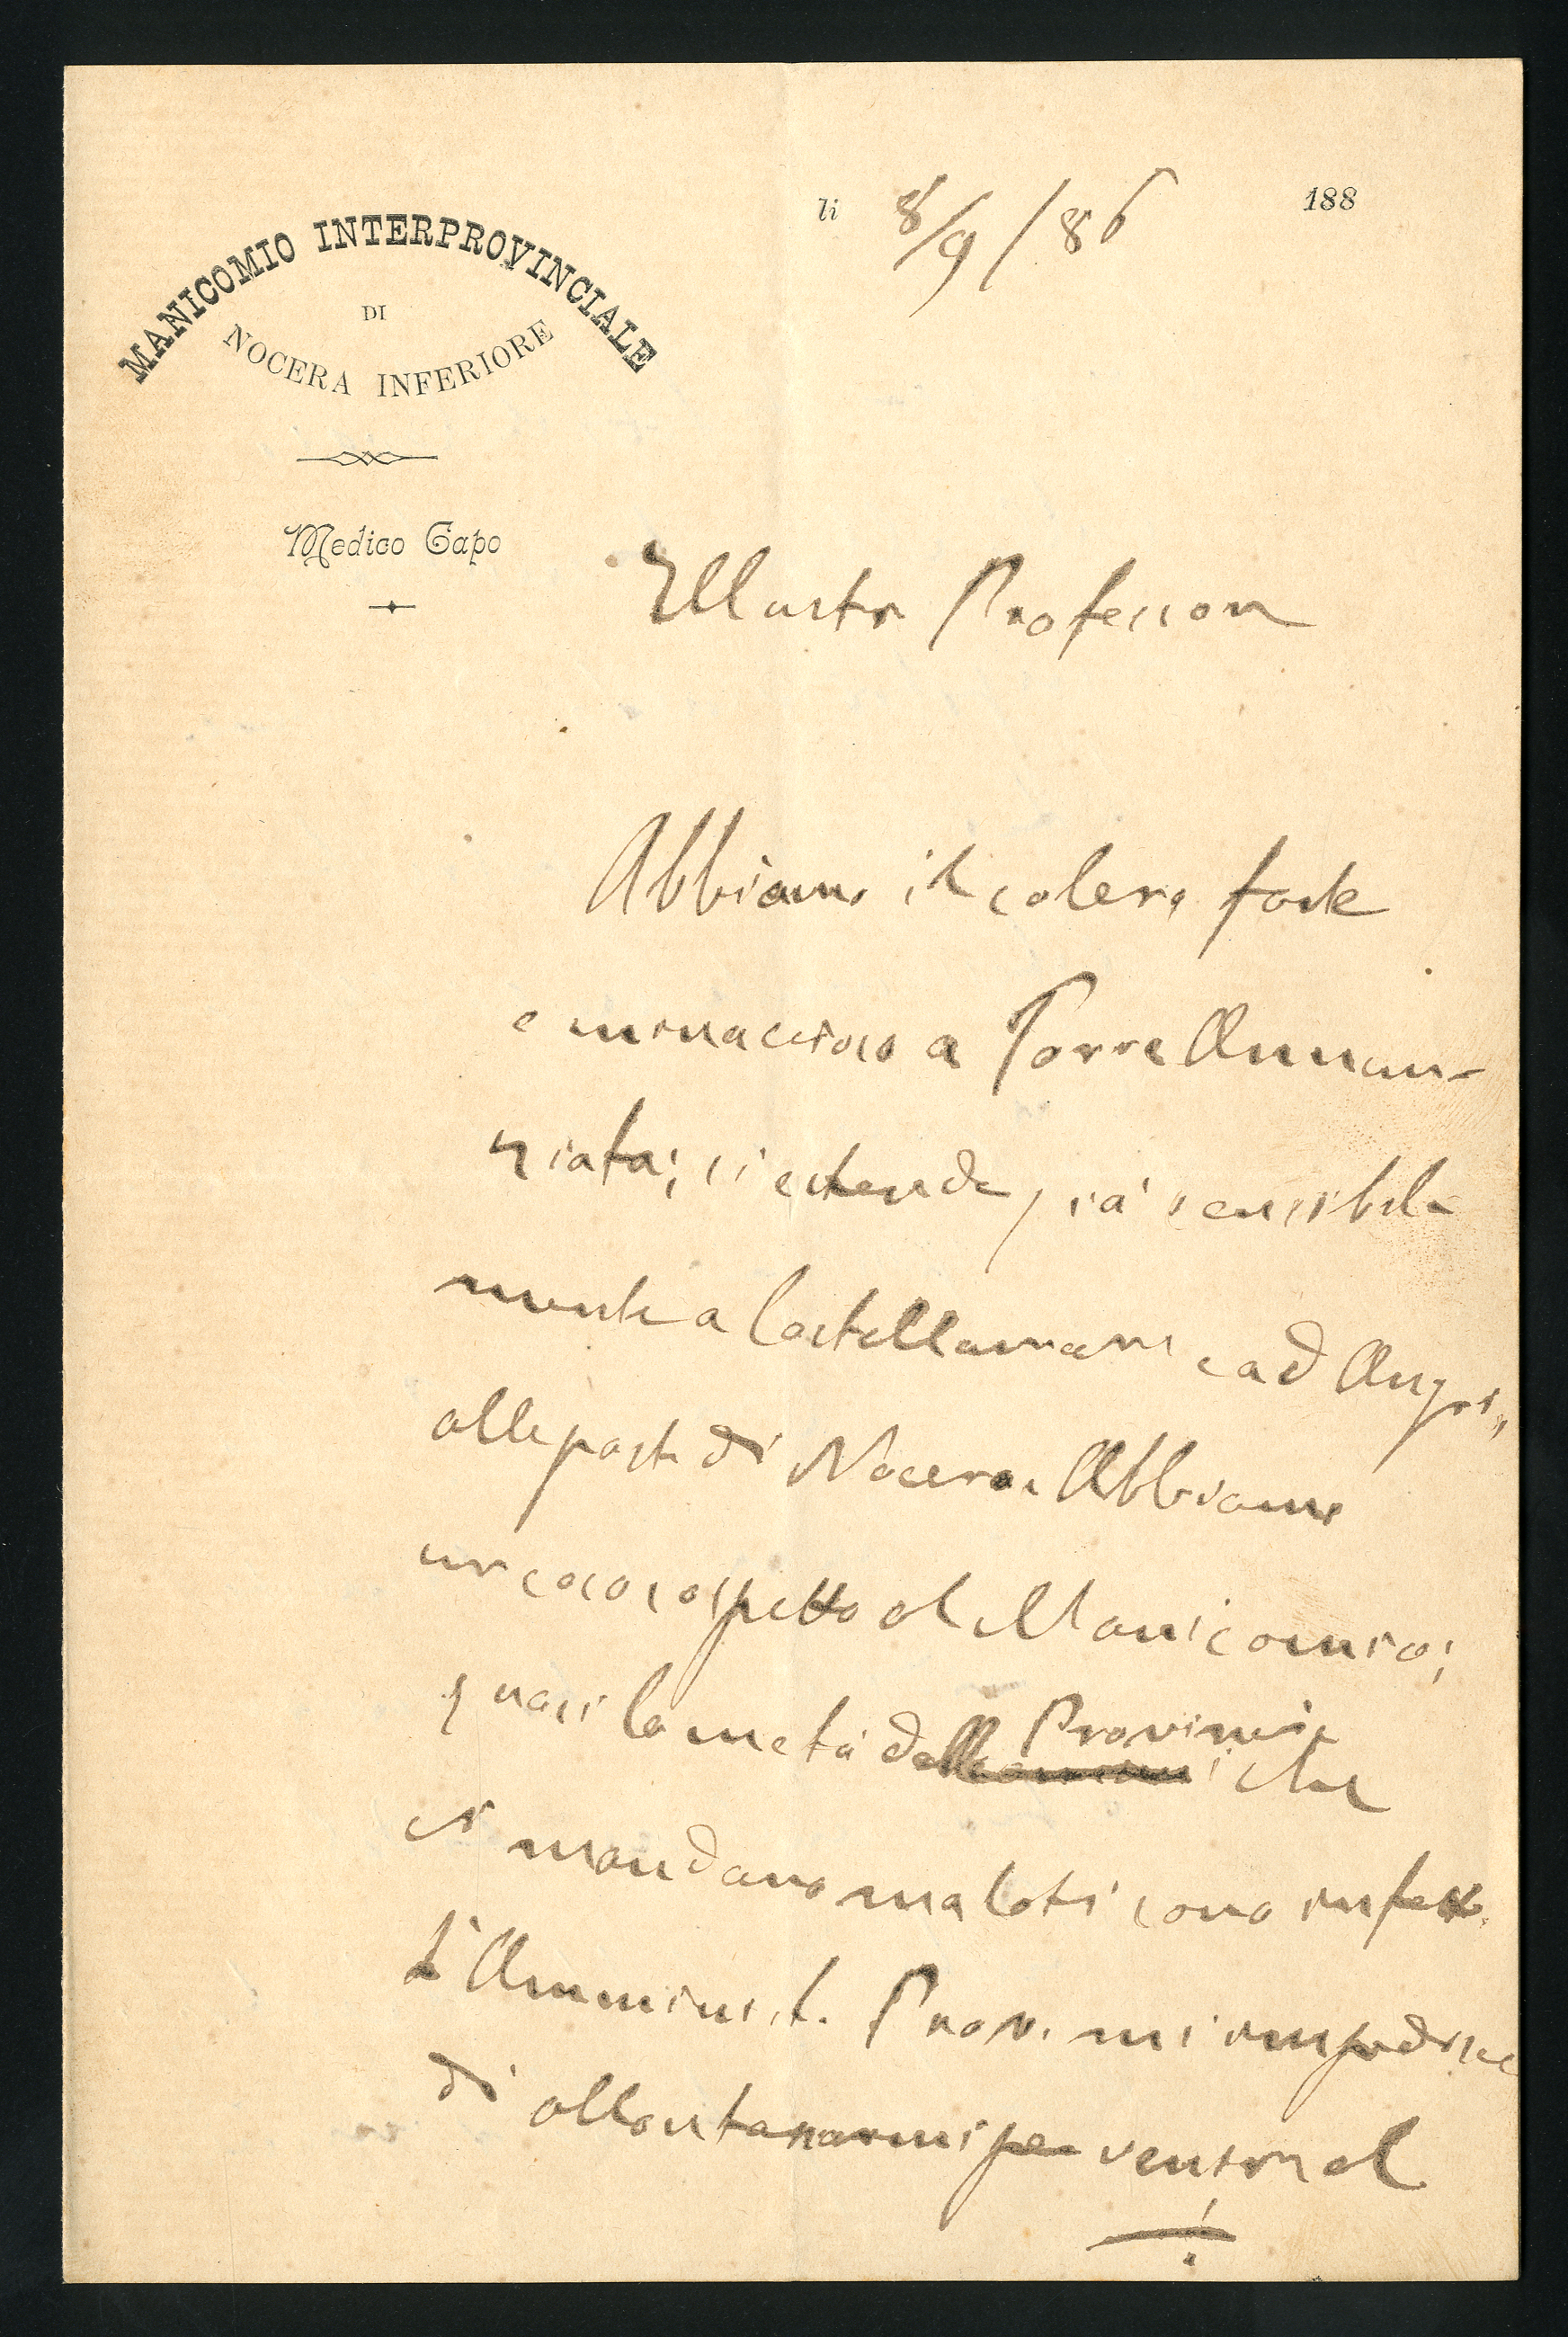 MANICOMIO INTERPROVINCIALE
DI
NOCERA INFERIORE
Medico Capo
li 8/9/86 188
Illustre Professore
Abbiamo il colera forte
e minaccioso a Torre Annun-
ziata; si estende già sensibil-
mente a Castellamare e ad Angri,
alle porte di Nocera. Abbiamo
un caso sospetto al Manicomio;
quasi la metà delle Provincie che
ci mandano malati sono infette.
L'Amminist. Prov. mi impedisce
di allontanarmi per venire al